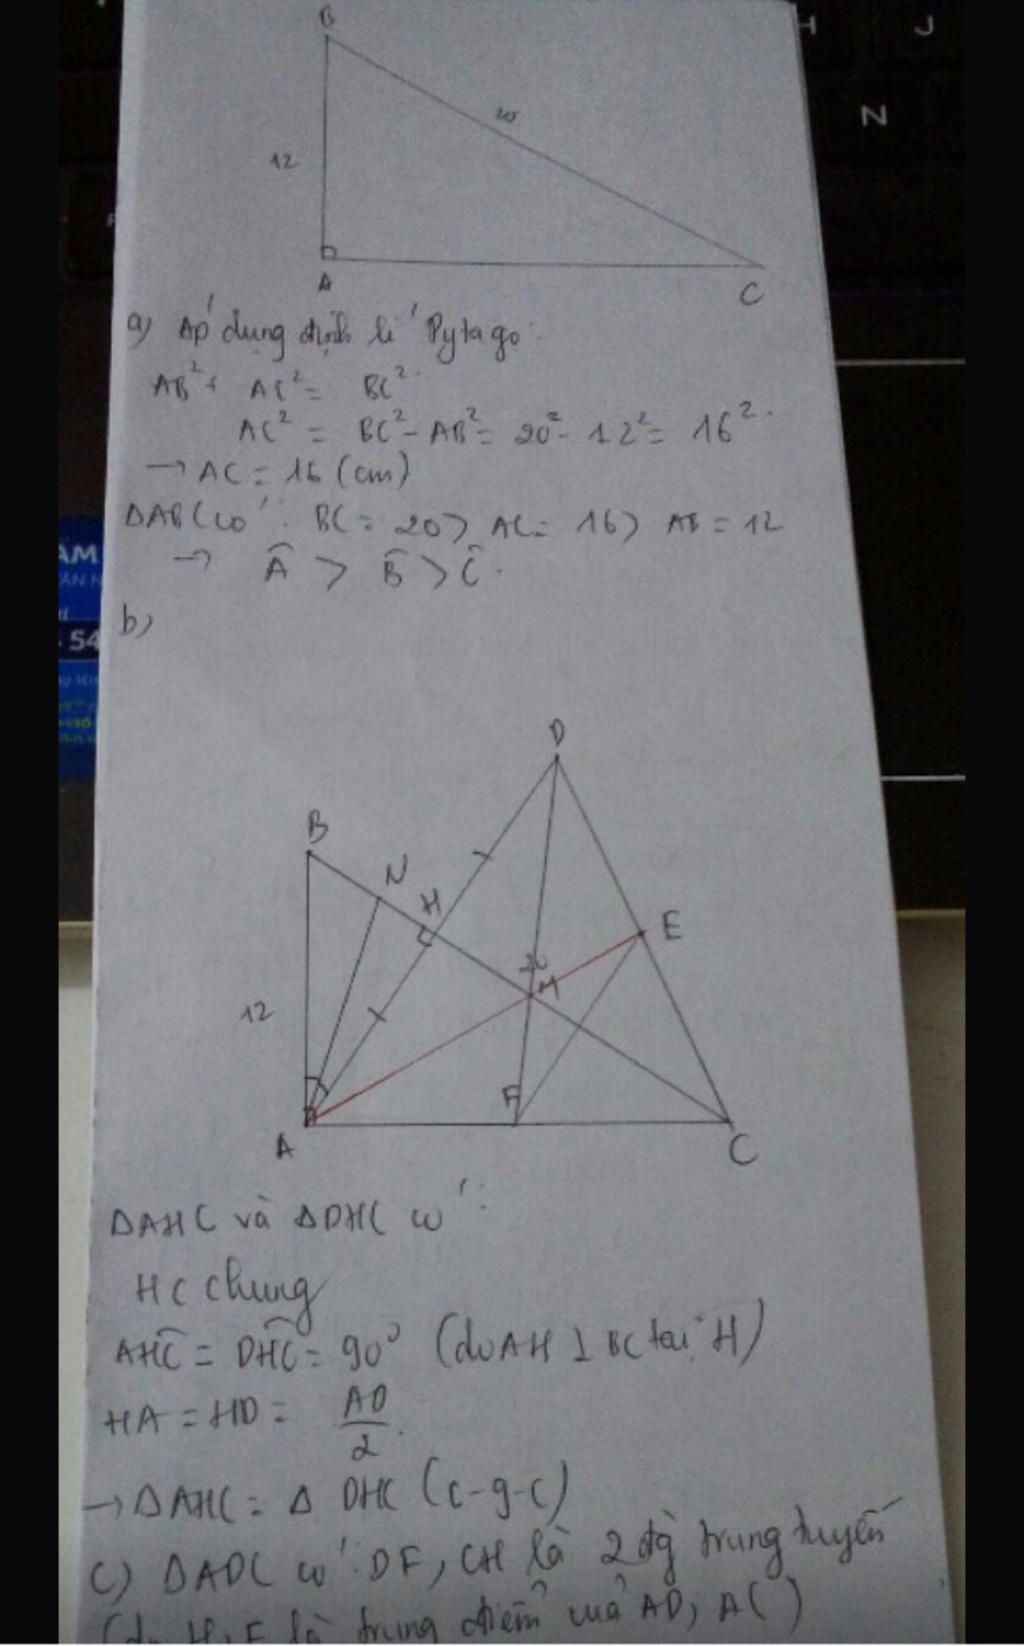 H J
N
B
20
12
A
C
a) Áp dụng định lí Pytago:
AB² + AC² = BC².
AC² = BC² - AB² = 20² - 12² = 16².
→ AC = 16 (cm)
ΔABC có: BC = 20 > AC = 16 > AB = 12
→ Â > B̂ > Ĉ.
ÂM
54
b)
D
B
N
H
E
20
M
12
F
A
C
ΔAHC và ΔDHC có:
HC chung
AHC = DHC = 90° (do AH ⊥ BC tại H)
HA = HD = AD/2.
→ ΔAHC = Δ DHC (c-g-c)
c) ΔADC có: DF, CH là 2 đg trung tuyến
(do H, F là trung điểm của AD, AC)